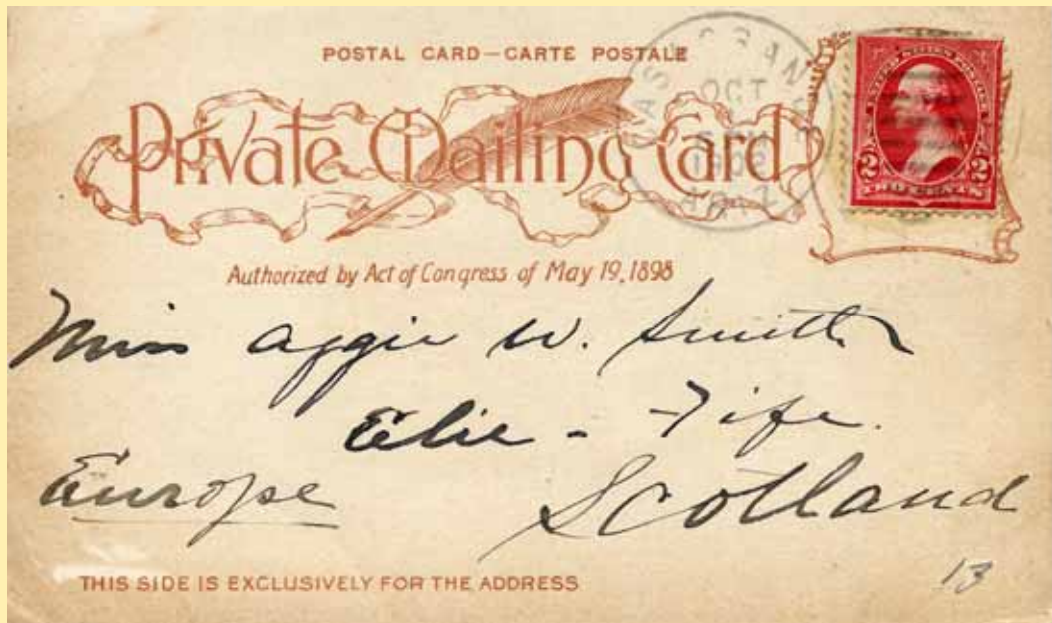 POSTAL CARD — CARTE POSTALE
Private Mailing Card
Authorized by Act of Congress of May 19, 1898
OCT
UNITED STATES POSTAGE
2 2
TWO CENTS
Miss Aggie W. Smith
Elie - Fife.
Europe Scotland
THIS SIDE IS EXCLUSIVELY FOR THE ADDRESS
13